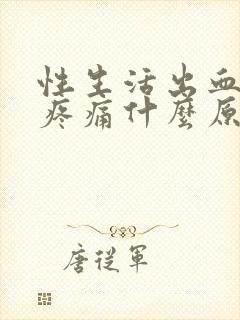 性生活出血
疼痛什麼原
唐從軍